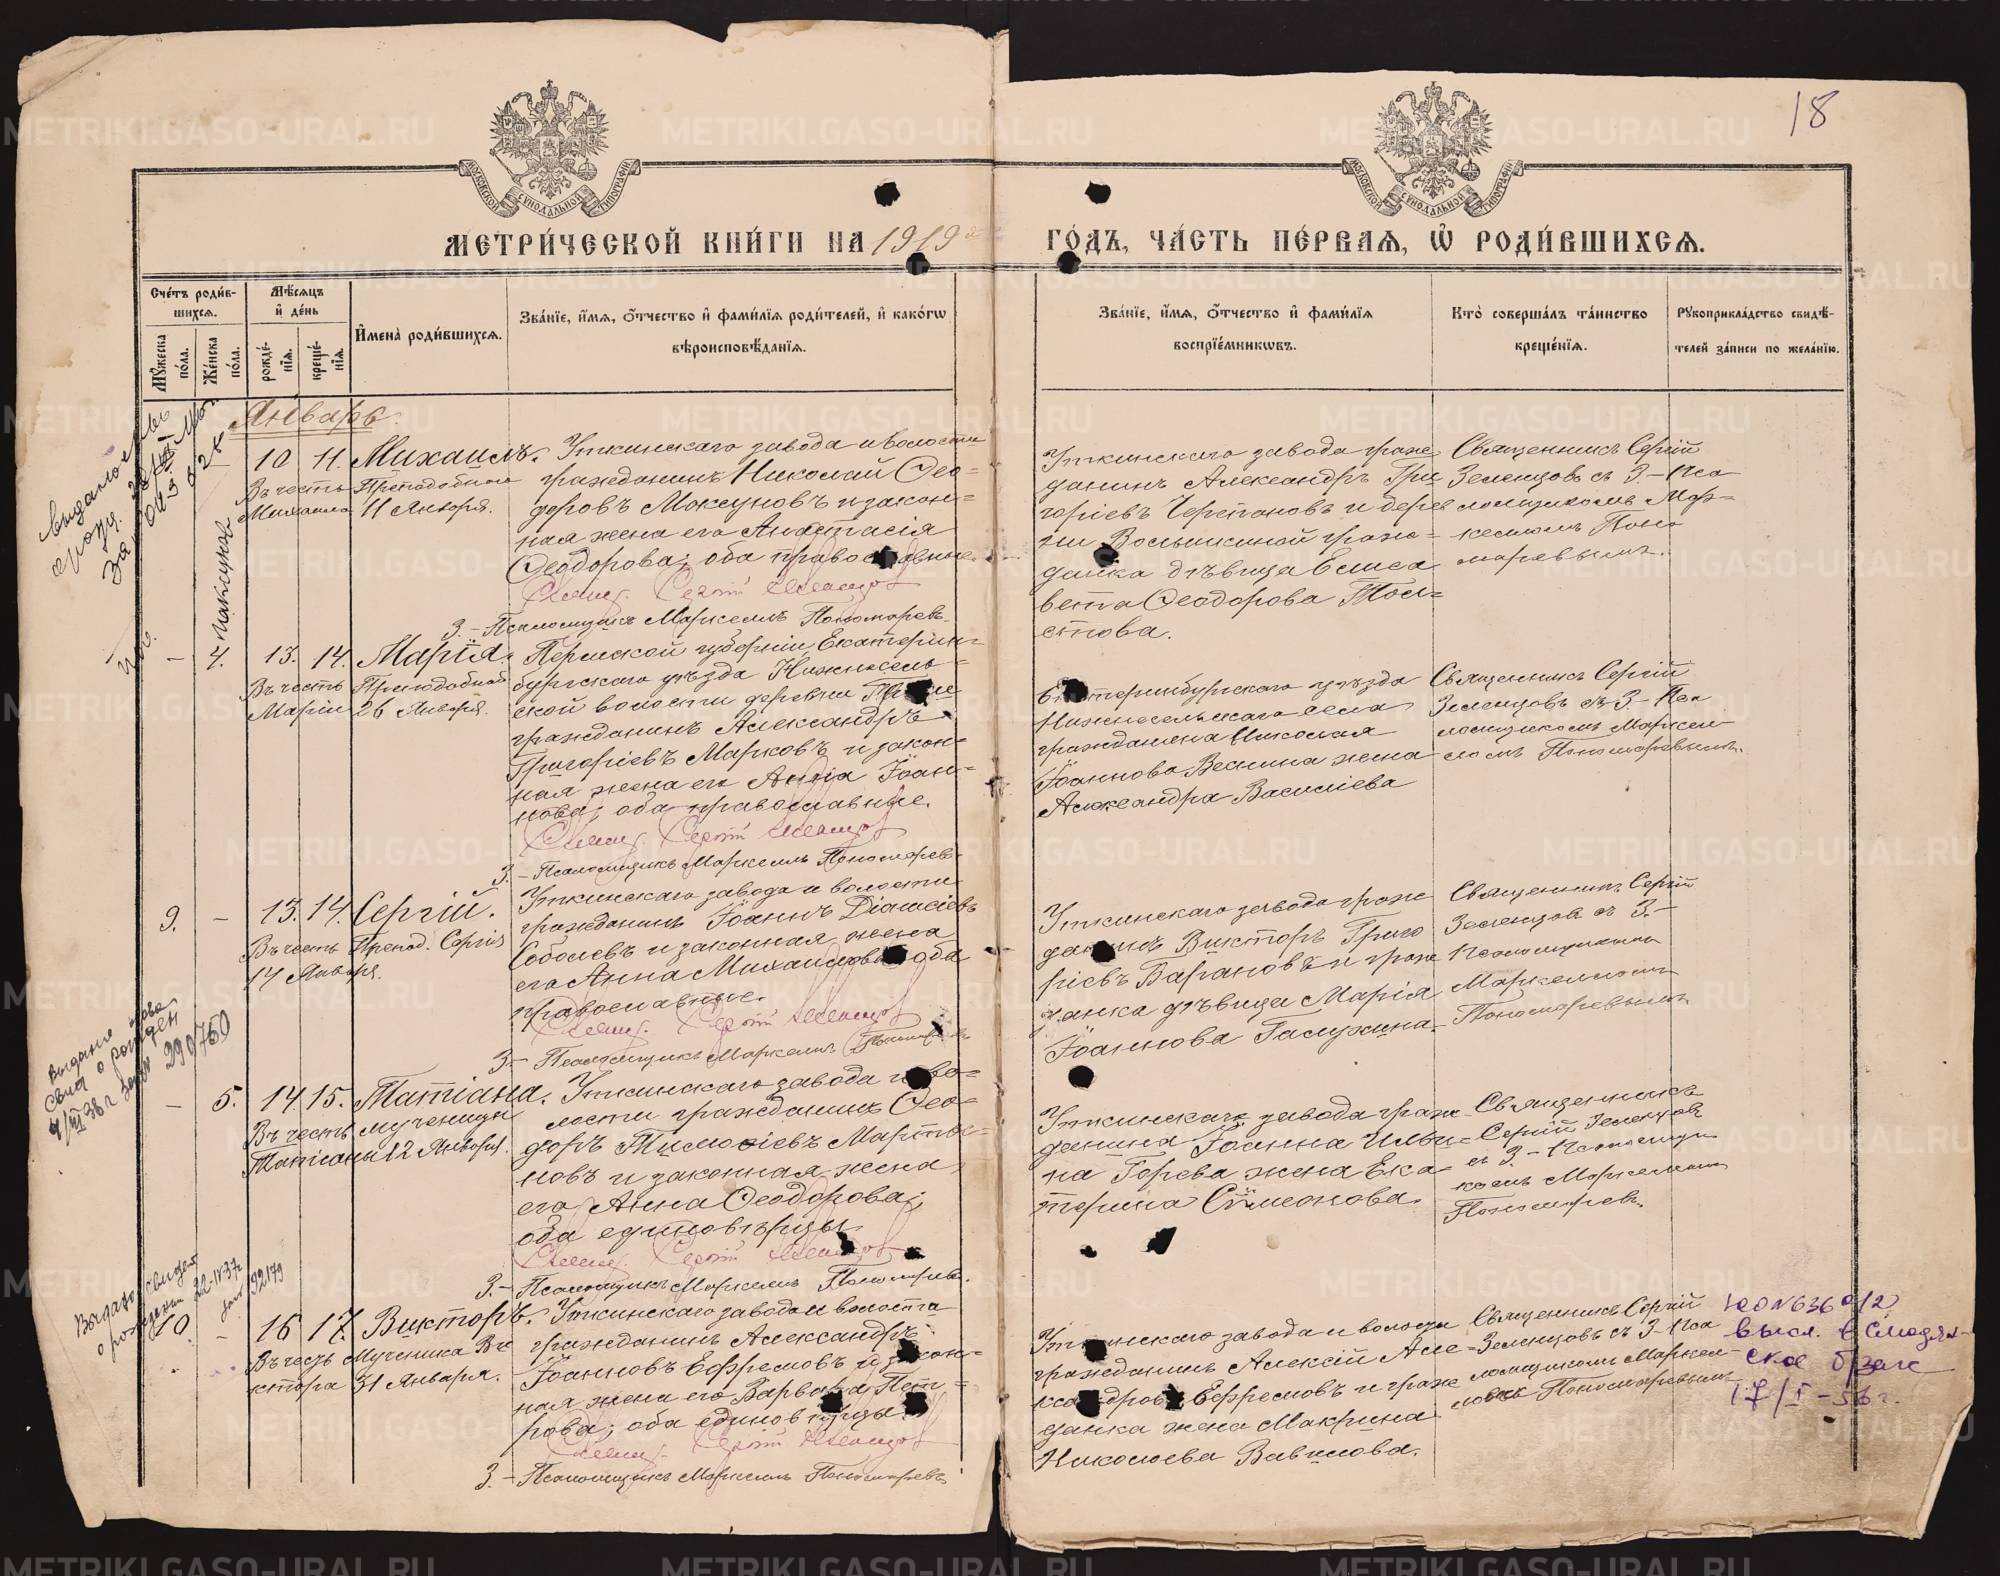 18
МОСКОВСКОЙ СУНОДАЛЬНОЙ ТИПОГРАФІИ
МОСКОВСКОЙ СУНОДАЛЬНОЙ ТИПОГРАФІИ
МЕТРИ́ЧЕСКОЙ КНИ́ГИ НА 1919 ГО́ДЪ, ЧА́СТЬ ПЕ́РВАѦ, Ѡ҆ РОДИ́ВШИХСѦ.
Сче́тъ роди́в-
шихсѧ.
Мѣ́сѧцъ
и҆ де́нь
Мꙋ́жеска
по́ла.
Же́нска
по́ла.
рожде́-
нїѧ.
креще́-
нїѧ.
И҆мена̀ роди́вшихсѧ.
Зва́нїе, и҆́мѧ, ѻ҆́тчество и҆ фами́лїѧ роди́телей, и҆ како́гѡ
вѣроисповѣ́данїѧ.
Зва́нїе, и҆́мѧ, ѻ҆́тчество и҆ фами́лїѧ
воспрїе́мникѡвъ.
Кто̀ соверша́лъ та́инство
креще́нїѧ.
Рꙋкоприкла́дство свидѣ́-
телей за́писи по жела́нїю.
Январь.
10 11. Михаилъ.
Въ честь Преподобнаго
Михаила 11 Января.
Уткинскаго завода и волости
гражданинъ Николай Ѳео-
доровъ Моксуновъ и закон-
ная жена его Анастасія
Ѳеодорова; оба православные.
Свящ. Сергій Зеленцов
З.– Псаломщикъ Маркеллъ Пономаревъ
Уткинскаго завода граж
данинъ Александръ Гри
горіевъ Черепановъ и дерев
ни Волыниной граж-
данка дѣвица Елиса
вета Ѳеодорова Тол-
стова.
Священникъ Сергій
Зеленцовъ съ З.– Пса
ломщикомъ Мар-
келломъ Поно
маревымъ.
– 4. 13. 14. Марія.
Въ честь Преподобной
Маріи 26 Января.
Пермской губерніи, Екатерин-
бургскаго уѣзда Нижнесель-
ской волости деревни
гражданинъ Александръ
Григоріевъ Марковъ и закон-
ная жена его Анна Іоан-
нова; оба православные.
Свящ. Сергій Зеленцов
З.– Псаломщикъ Маркеллъ Пономаревъ
Екатеринбургскаго уѣзда
Нижнесельскаго села
гражданина Николая
Іоаннова Веснина жена
Александра Василіева
Священникъ Сергій
Зеленцовъ съ З.– Пса
ломщикомъ Маркел
ломъ Пономаревымъ.
9. – 13. 14. Сергій.
Въ честь Препод. Сергія
14 Января.
Уткинскаго завода и волости
гражданинъ Іоаннъ Діонисіевъ
Соболевъ и законная жена
его Анна Михаилова оба
православные.
Свящ. Сергій Зеленцов
З.– Псаломщикъ Маркеллъ Пономаревъ
Уткинскаго завода граж
данинъ Викторъ Григо
ріевъ Барановъ и граж
данка дѣвица Марія
Іоаннова Галухина.
Священникъ Сергій
Зеленцов съ З.–
Псаломщикомъ
Маркелломъ
Пономаревымъ
– 5. 14 15. Татіана.
Въ честь мученицы
Татіаны 12 Января.
Уткинскаго завода и во-
лости гражданинъ Ѳео-
доръ Тимоѳіевъ Марты-
новъ и законная жена
его Анна Ѳеодорова;
оба единовѣрцы
Свящ. Сергій Зеленцов
З.– Псаломщикъ Маркеллъ Пономарев.
Уткинскаго завода граж
данина Іоанна Ильи-
на Горева жена Ека
терина Сѵмеонова.
Священникъ
Сергій Зеленцов
съ З.– Псаломщи
комъ Маркелломъ
Пономарев.
10 – 16 17. Викторъ.
Въ честь Мученика Ви
ктора 31 Января.
Уткинскаго завода и волости
гражданинъ Александръ
Іоанновъ Ефремовъ и закон-
ная жена его Варвара Пет-
рова; оба единовѣрцы
Свящ. Сергій Зеленцов
З.– Псаломщикъ Маркеллъ Пономаревъ
Уткинскаго завода и волости
гражданинъ Алексій Але-
ксандровъ Ефремовъ и граж
данка жена Макрина
Николаева Вавилова.
Священникъ Сергій
Зеленцовъ съ З.– Пса
ломщикомъ Маркел-
ломъ Пономаревымъ
17/I – 56 г.
Максунов
Выдано
о рожден
290750
Выдано
о рождении 22-IV 37г
92179
METRIKI.GASO-URAL.RU